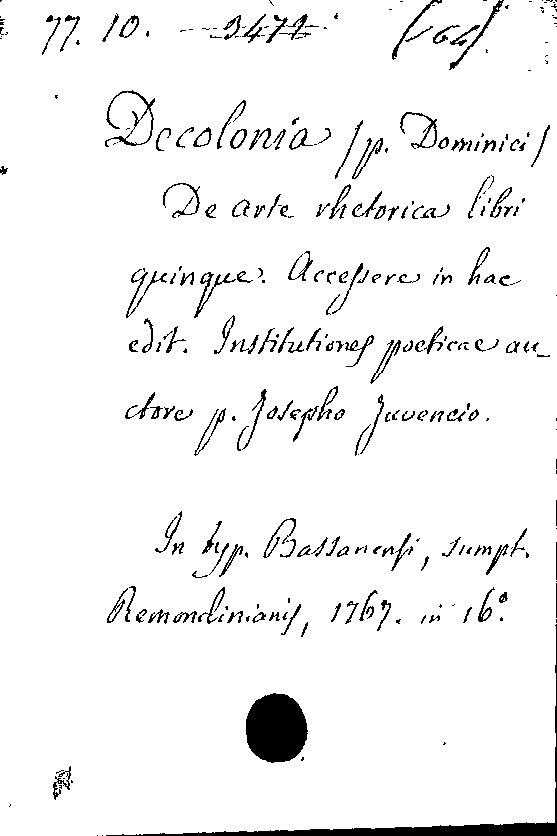 77. 10. 3471 (64).
Decolonia /p. Dominici/
De arte rhetorica libri
quinque. Accessere in hac
edit. Institutiones poeticae au_
ctore p. Josepho Juvencio.
In typ. Bassanensi, sumpt.
Remondinianis, 1767. in 16°.